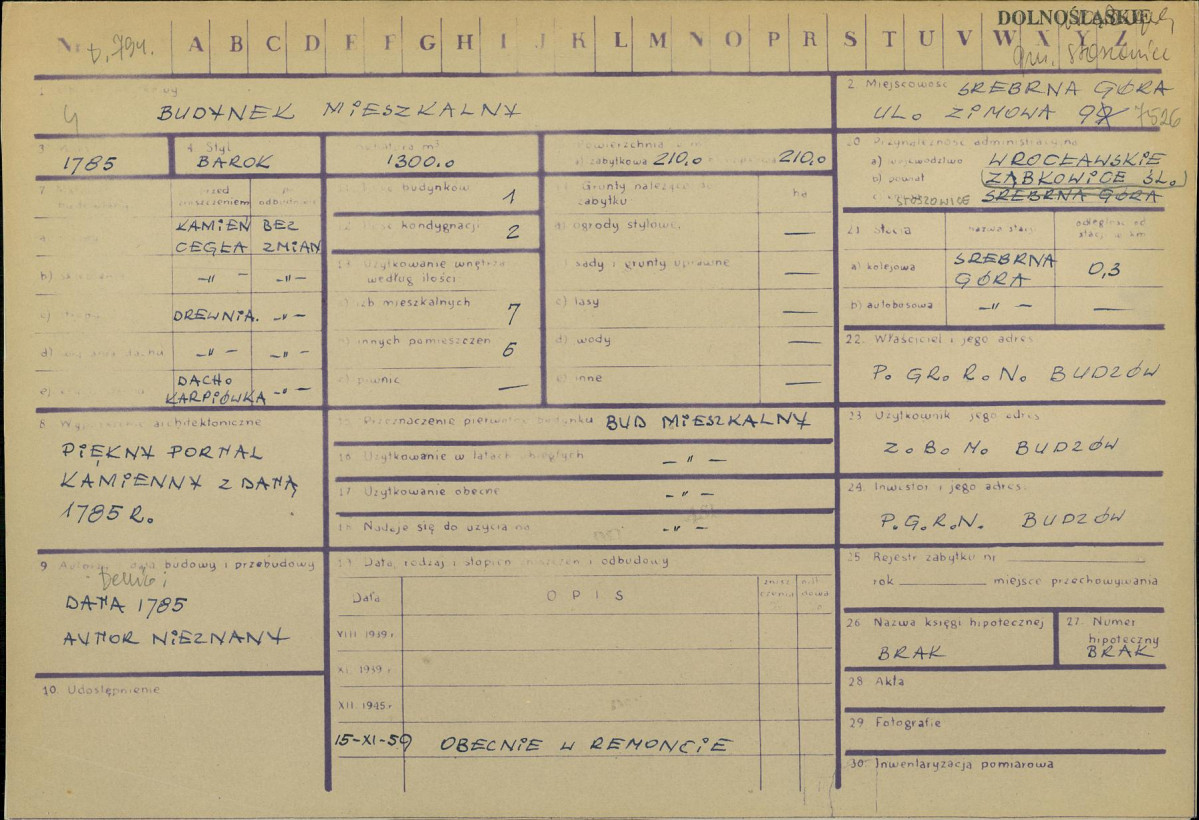 DOLNOŚLĄSKIE
Nr D. 794. A B C D E F G H I J K L M N O P R S T U V W X Y Z
gm. Stoszowice
BUDYNEK MIESZKALNY
2. Miejscowość SREBRNA GÓRA
UL. ZIMOWA 7526
3
1785
4. Styl
BAROK
m³
1300.0
m²
a) zabytkowa 210,0 210,0
20 Przynależność administracyjna
a) województwo WROCŁAWSKIE
b) powiat (ZĄBKOWICE ŚL.)
STOSZOWICE SREBRNA GÓRA
7 przed zniszczeniem po odbudowie
KAMIEŃ CEGŁA BEZ ZMIAN
b) —„— —„—
c) DREWNIA. —„—
d) dachu —„— —„—
e) DACH. KARPIÓWKA —„—
budynków 1
Ilość kondygnacji 2
Użytkowanie wnętrza
według ilości:
izb mieszkalnych 7
innych pomieszczeń 6
piwnic —
Grunty należące do
zabytku ha
ogrody stylowe, —
sady i grunty uprawne —
c) lasy —
d) wody —
e) inne —
21 Stacja nazwa stacji odległość od stacji w km
a) kolejowa SREBRNA GÓRA 0,3
b) autobusowa —„— —
22. Właściciel i jego adres
P. GR. R. N. BUDZÓW
8 architektoniczne
PIĘKNY PORTAL
KAMIENNY Z DATĄ
1785 R.
15 Przeznaczenie pierwotne budynku BUD MIESZKALNY
16 Użytkowanie w latach ubiegłych —„—
17 Użytkowanie obecne —„—
18 Nadaje się do użycia na —„—
23 Użytkownik i jego adres
Z. B. M. BUDZÓW
24. Inwestor i jego adres:
P. G. R. N. BUDZÓW
9 Autorzy, data budowy i przebudowy
DATA 1785
AUTOR NIEZNANY
19 Data, rodzaj i stopień zniszczeń i odbudowy
Data OPIS
VIII 1939 r.
XI. 1939 r.
XII. 1945 r.
15-XI-59 OBECNIE W REMONCIE
25 Rejestr zabytku nr
rok miejsce przechowywania
26 Nazwa księgi hipotecznej
BRAK
27. Numer
hipoteczny
BRAK
10. Udostępnienie
28 Akta
29 Fotografie
30. Inwentaryzacja pomiarowa